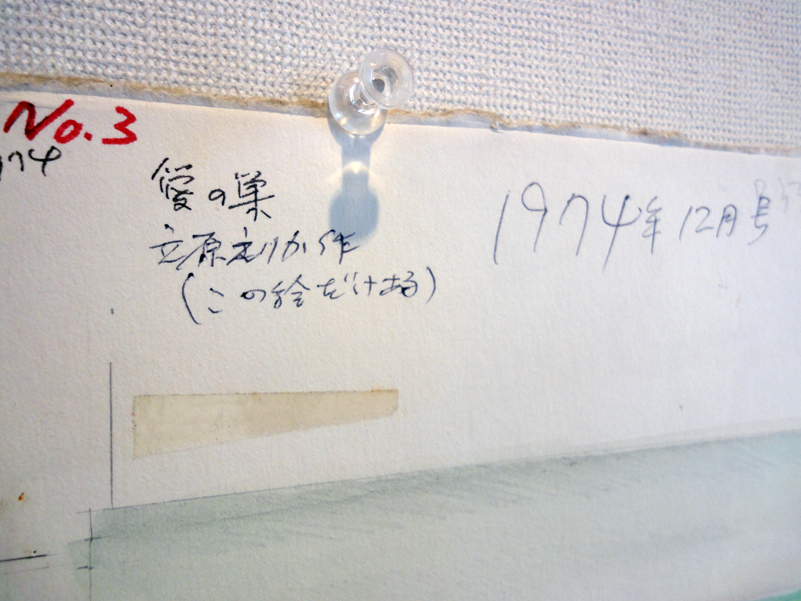 No.3
974
愛の巣
立原えりか作
(この絵だけある)
1974年12月号